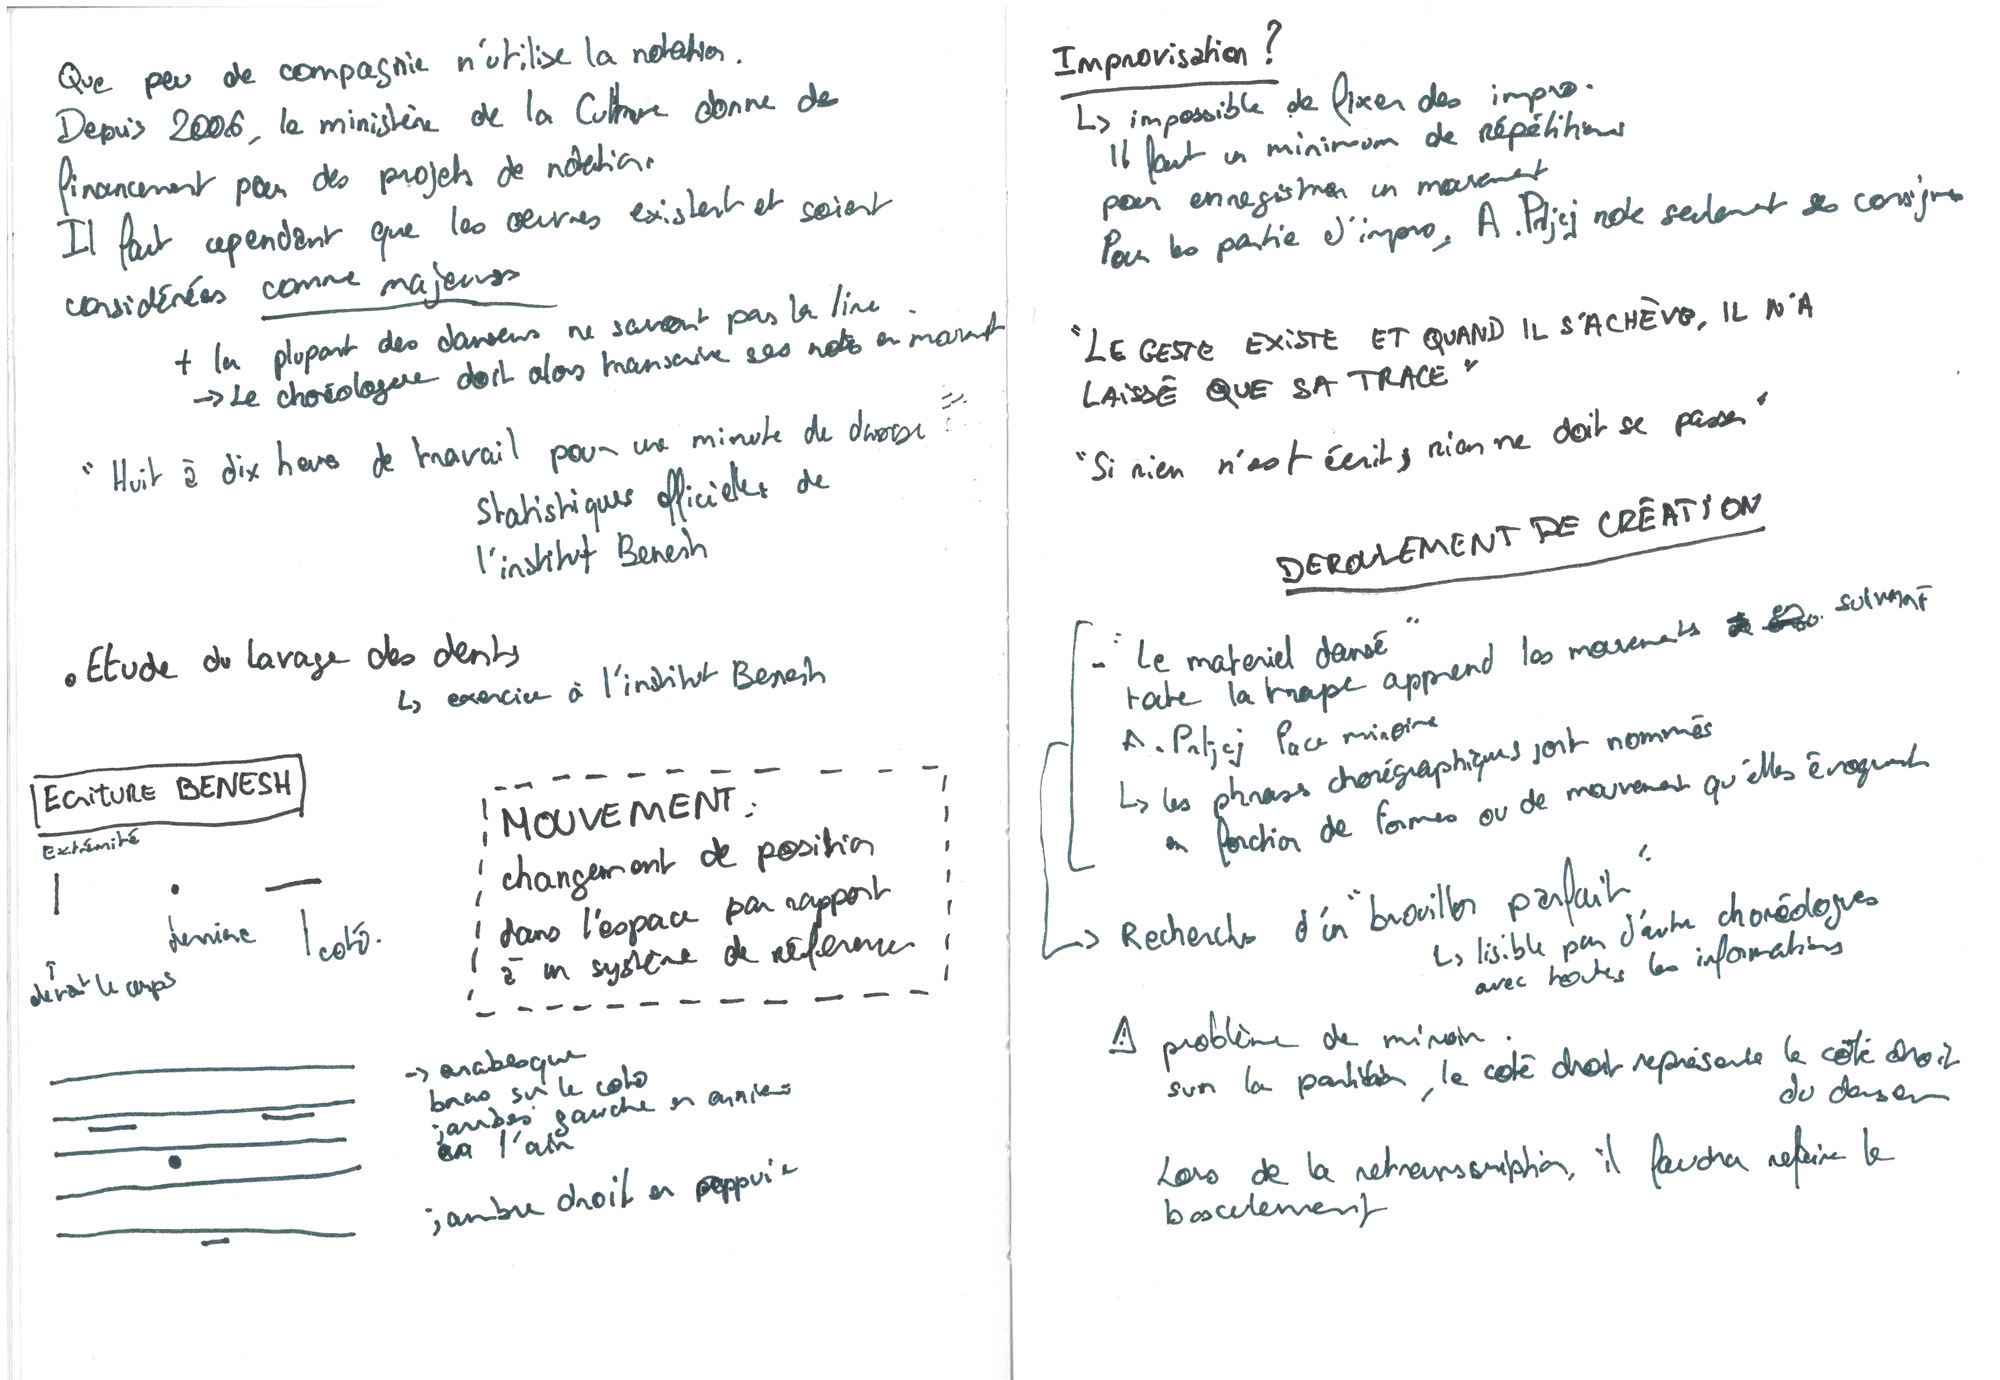 Que peu de compagnie n'utilise la notation.
Depuis 2006, le ministère de la Culture donne des
financement pour des projets de notation.
Il faut cependant que les œuvres existent et soient
considérées comme majeures
+ la plupart des danseurs ne savent pas la lire.
→ Le choréologue doit alors transcrire ses notes en mouvt
"Huit à dix heures de travail pour une minute de danse"
Statistiques officielles de
l'institut Benesh
• Etude du lavage des dents
↳ exercice à l'institut Benesh
ECRITURE BENESH
Extrémité
derrière
coté.
devant le corps
MOUVEMENT :
changement de position
dans l'espace par rapport
à un système de référence
→ arabesque
bras sur le coté
jambes gauche en arrière
en l'air
jambre droit en appui
Improvisation ?
↳ impossible de fixer des impro.
Il faut un minimum de répétitions
pour enregistrer un mouvement
Pour les partie d'impro, A. Prljcj note seulement ses consignes
"LE GESTE EXISTE ET QUAND IL S'ACHÈVE, IL N'A
LAISSÉ QUE SA TRACE"
"Si rien n'est écrit, rien ne doit se passer"
DEROULEMENT DE CRÉATION
- "Le materiel dansé"
toute la troupe apprend les mouvements suivant
A. Prljcj face miroire
↳ les phrases chorégraphiques sont nommés
en fonction de formes ou de mouvement qu'elles évoquent
→ Recherche d'un "brouillon parfait"
↳ lisible par d'autre choréologues
avec toutes les informations
⚠ problème de miroir.
sur la partition, le coté droit représente le coté droit
du danseur
Lors de la retranscription, il faudra refaire le
basculement